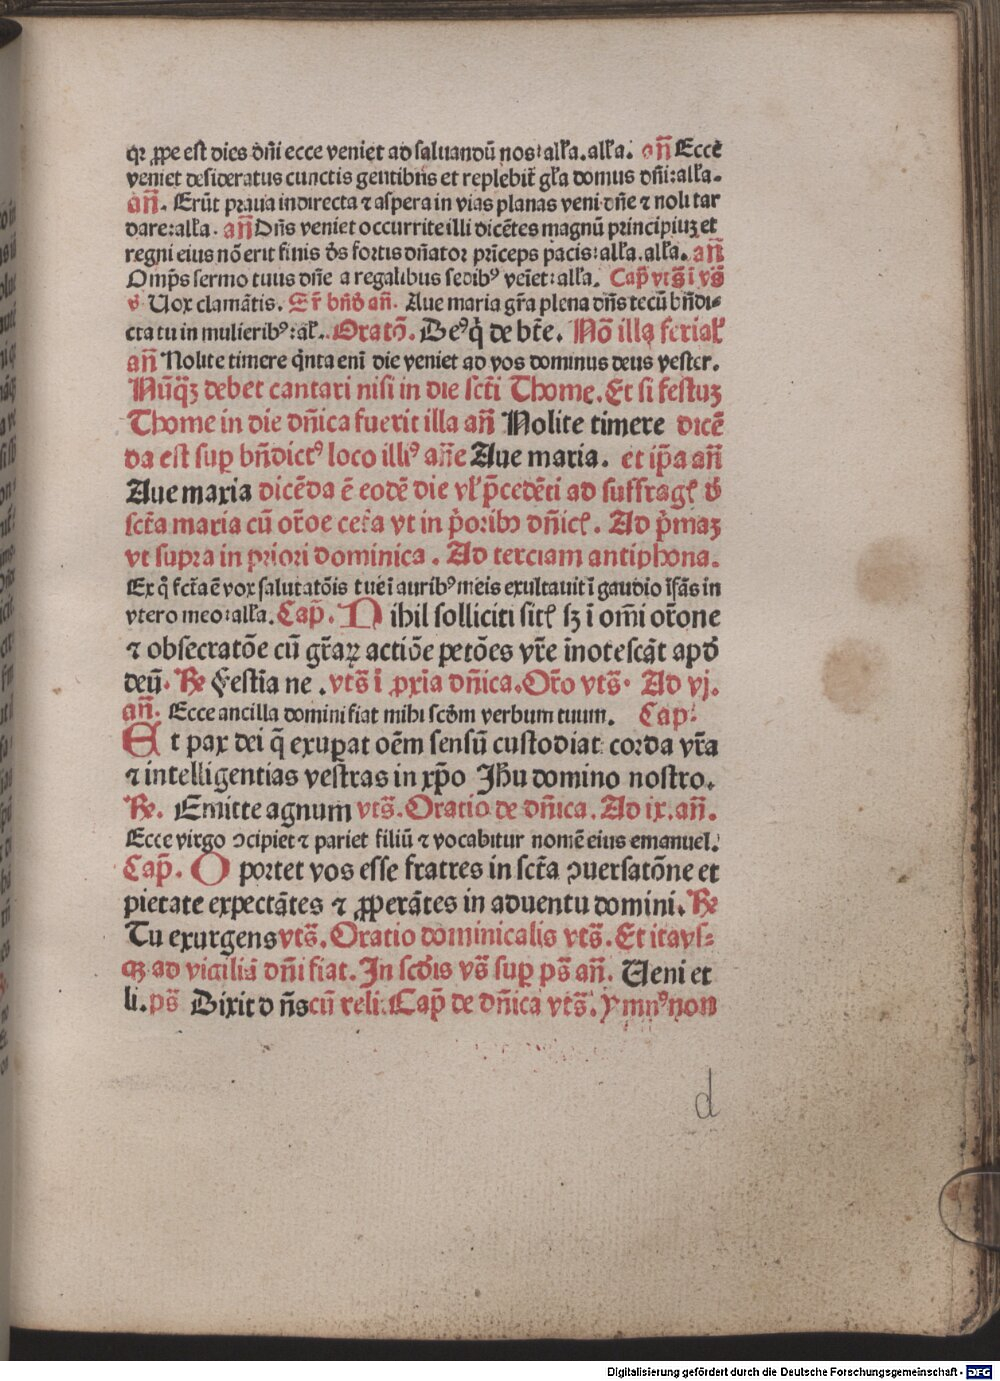 qꝛ ꝓpe est dies dn̄i ecce veniet ad saluandū nos:all'a.all'a. an̄ Ecce
veniet desideratus cunctis gentibus et replebit᷑ gl'a domus dn̄i:all'a.
an̄. Erūt praua in directa ⁊ aspera in vias planas veni dn̄e ⁊ noli tar
dare:all'a. an̄ Dn̄s veniet occurrite illi dicētes magnū principiuꝫ et
regni eius nō erit finis ds̄ fortis dn̄ator prīceps pacis:all'a.all'a. an̄
Omp̄s sermo tuus dn̄e a regalibus sedibꝰ veīet:all'a. Cap̄ vts̄ ī vs̄
v̓ Uox clamātis. Sr̄ bn̄d an̄. Aue maria gr̄a plena dn̄s tecū bn̄di-
cta tu in mulieribꝰ:al'. Oratō. Deꝰ q̇ de btē. Nō illa ferial'
an̄ Nolite timere q̇nta enī die veniet ad vos dominus deus vester.
Nūq̄ꝫ debet cantari nisi in die sct̄i Thome. Et si festuꝫ
Thome in die dn̄ica fuerit illa an̄ Nolite timere dicē
da est suꝑ bn̄dictꝰ loco illiꝰ an̄e Aue maria. et ip̄a an̄
Aue maria dicēda ē eodē die vl' p̄cedēti ad suffrag' d'
sct̄a maria cū or̄oe cet̄a vt in p̓oribꝰ dn̄ic'. Ad p̓maꝫ
vt supra in priori dominica. Ad terciam antiphona.
Ex q̇ fct̄a ē vox salutatōis tue ī auribꝰ meis exultauit ī gaudio īfās in
vtero meo:all'a. Cap̄. N ihil solliciti sit' sꝫ ī om̄i or̄one
⁊ obsecratōe cū gr̄aꝝ actiōe petōes vr̄e īnotescāt apd'
deū. ℞ Festīa ne. vts̄ ī ꝓxīa dn̄ica. Or̄o vts̄. Ad vj.
an̄. Ecce ancilla domini fiat mihi scdm̄ verbum tuum. Cap:
E t pax dei q̄ exuꝑat oēm sensū custodiat corda vr̄a
⁊ intelligentias vestras in xp̄o Jhū domino nostro.
℞. Emitte agnum vts̄. Oratio de dn̄ica. Ad ix. an̄.
Ecce virgo ꝯcipiet ⁊ pariet filiū ⁊ vocabitur nomē eius emanuel.
Cap̄. O portet vos esse fratres in sct̄a ꝯuersatōne et
pietate expectātes ⁊ ꝓperātes in aduentu domini. ℞
Tu exurgens vts̄. Oratio dominicalis vts̄. Et ita vs-
qꝫ ad vigiliā dn̄i fiat. In scd̄is vs̄ suꝑ ps̄ an̄. Ueni et
li. ps̄ Dixit d n̄s cū reli. Cap̄ de dn̄ica vts̄. ymnꝰ non
d
Digitalisierung gefördert durch die Deutsche Forschungsgemeinschaft - DFG